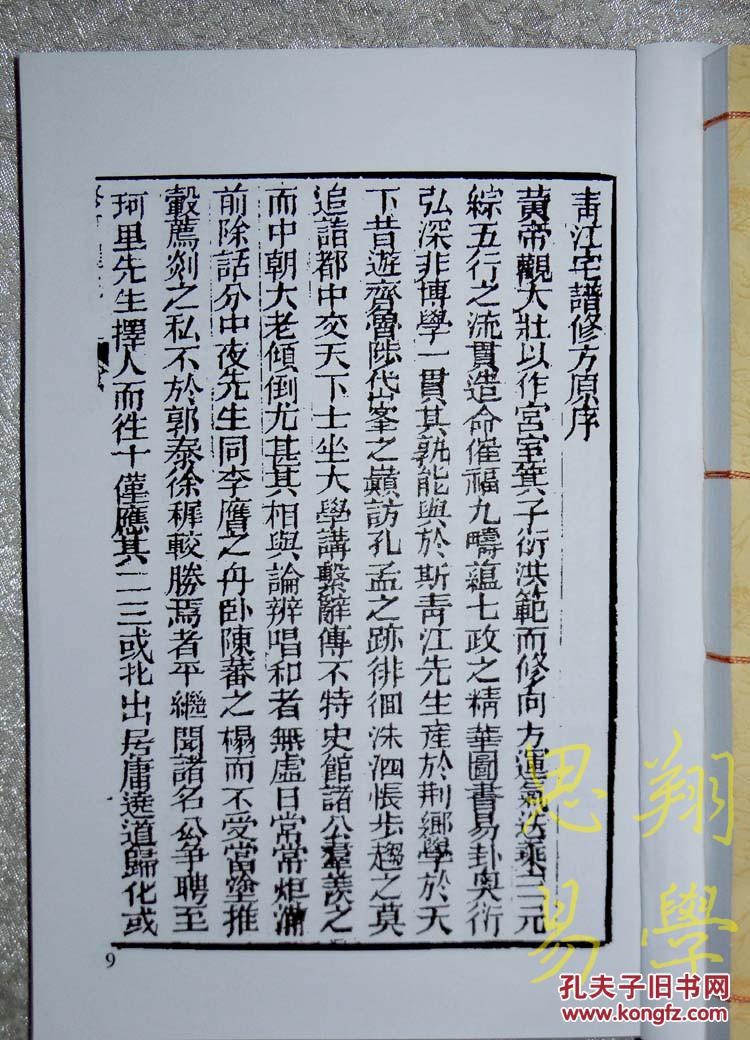 青江宅譜修方原序
黃帝觀大壯以作宮室箕子衍洪範而修向方運氣迭乘三元
綜五行之流貫造命催福九疇蘊七政之精華圖書易卦奧衍
弘深非博學一貫其孰能與於斯青江先生產於荆鄉學於天
下昔遊齊魯陟岱峯之巔訪孔孟之跡徘徊洙泗悵步趨之莫
追詣都中交天下士坐大學講繫辭傳不特史館諸公羣羨之
而中朝大老傾倒尤甚其相與論辨唱和者無虛日常常炬滿
前除話分中夜先生同李膺之舟臥陳蕃之榻而不受當塗推
轂薦剡之私不於郭泰徐穉較勝焉者乎繼聞諸名公爭聘至
珂里先生擇人而徃十僅應其二三或北出居庸遶道歸化或
9
思翔
易學
孔夫子旧书网
www.kongfz.com